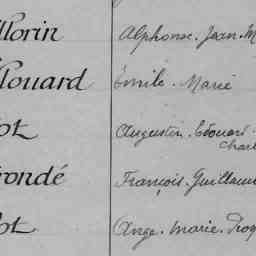 llorin Alphonse. Jean. M
llouard Emile. Marie
ot Augustin. Edouard.
Charl
rondé François. Guillaum
ot Ange. Marie. Prosp